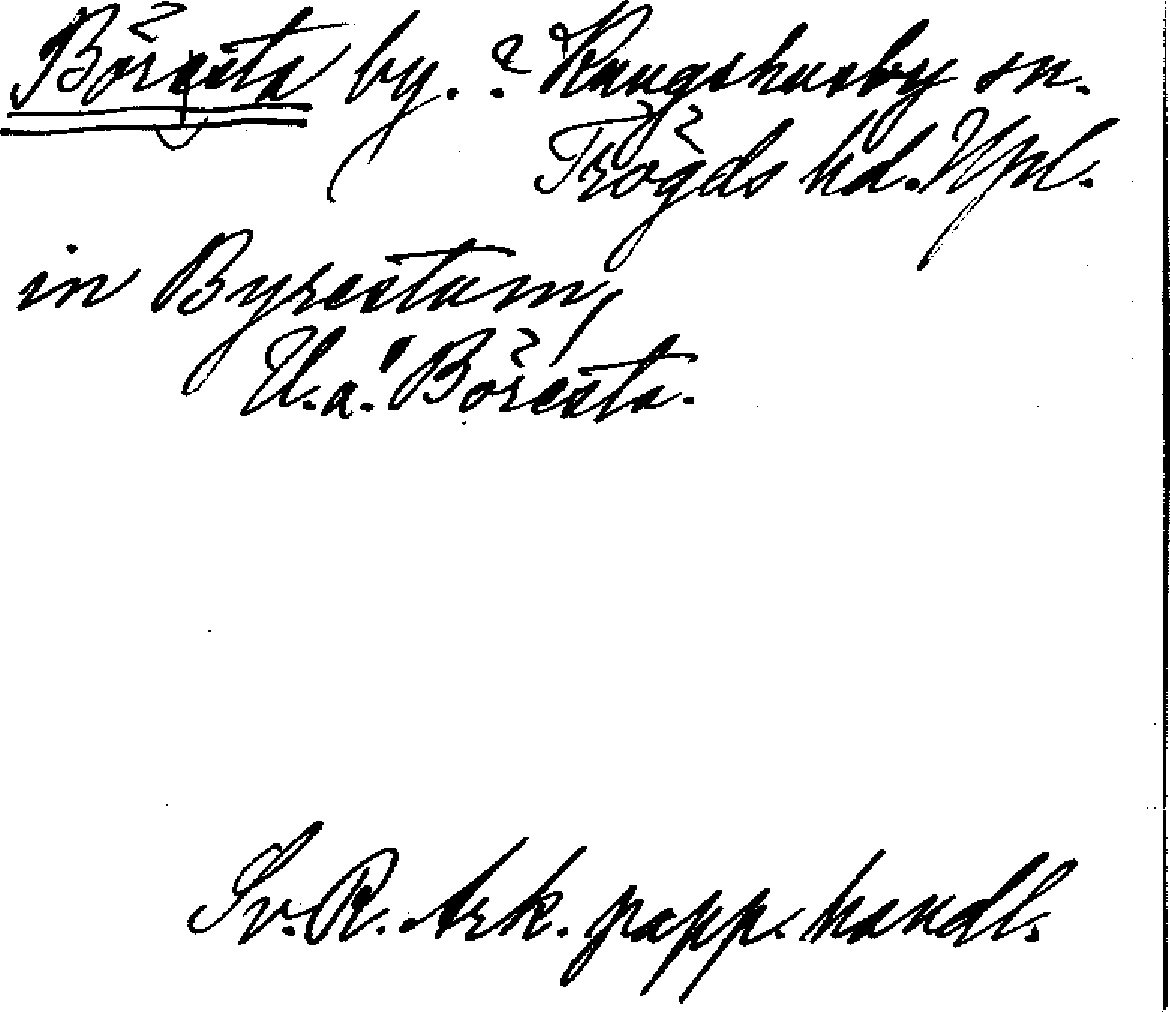 Böresta by. ? Kungshusby sn.
Trögds hd. Upl.
in Byrestum,
U.a. Böresta.
Sv. R. Ark. papp. handl.